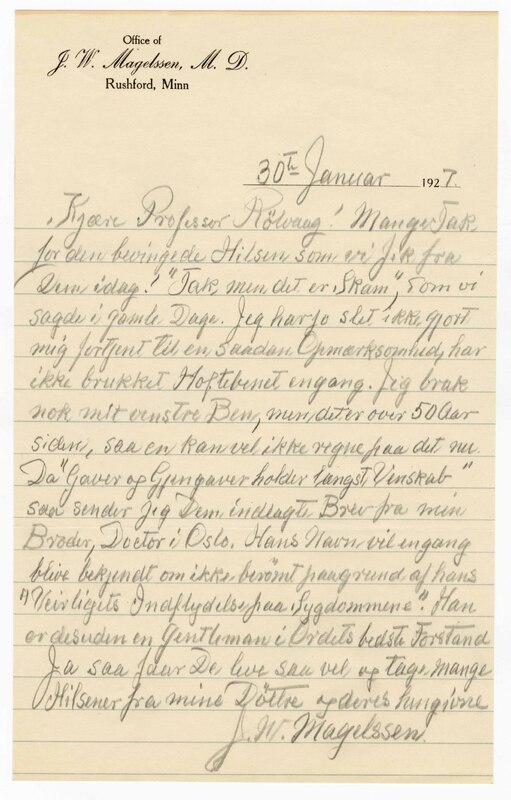 Office of
J. W. Magelssen, M. D.
Rushford, Minn
30th Januar 1927.
Kjære Professor Rölvaag! Mange Tak
for den bevingede Hilsen som vi fik fra
Dem idag! "Tak, men det er Skam", som vi
sagde i gamle Dage. Jeg har jo slet ikke gjort
mig fortjent til en saadan Opmærksomhed, har
ikke brukket Hoftebenet engang. Jeg brak
nok mit venstre Ben, men det er over 50 Aar
siden, saa en kan vel ikke regne paa det nu.
Da "Gaver og Gjengaver holder længst Venskab"
saa sender jeg Dem indlagte Brev fra min
Broder, Doctor i Oslo. Hans Navn vil engang
blive bekjendt om ikke berömt paagrund af hans
"Veirligets Indflydelse paa Sygdommene". Han
er desuden en Gentleman i Ordets bedste Forstand
Ja saa faar De leve saa vel og tage mange
Hilsener fra mine Döttre og deres hengivne
J. W. Magelssen.